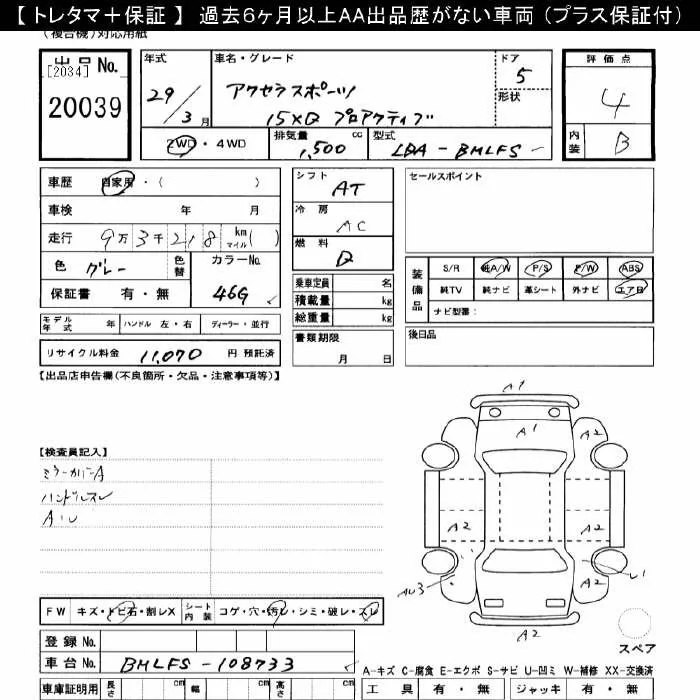 【 トレタマ＋保証 】 過去6ヶ月以上AA出品歴がない車両 (プラス保証付)
(複合機)対応用紙
出品 No.
[2034]
20039
年式
29/3月
車名・グレード
アクセラスポーツ
15XD プロアクティブ
ドア
5
形状
評価点
4
内装
B
2WD・4WD
排気量 1,500 cc
型式 LDA-BMLFS
車歴 自家用・( )
車検 年 月
走行 9万3千218 km マイル( )
色 グレー
色替
カラーNo.
46G
保証書 有・無
シフト
AT
冷房
AC
燃料
D
乗車定員 名
積載量 kg
総重量 kg
書類期限
月 日
セールスポイント
装備品
S/R 純A/W P/S P/W ABS
純TV 純ナビ 革シート 外ナビ エアB
ナビ型番：
後日品
モデル年式 年 ハンドル 左・右 ディーラー・並行
リサイクル料金 11,070 円 預託済
【出品店申告欄(不良箇所・欠品・注意事項等)】
【検査員記入】
ミラーカバーA
ハンドルスレ
A・U
A1
A1
A2
A2
A2
A2
AU3
A2
U1
A2
スペア
FW キズ・トビ石・割レX シート内装 コゲ・穴・汚レ・シミ・破レ・スレ
登録 No.
車台 No. BMLFS-108733
A-キズ C-腐食 E-エクボ S-サビ U-凹ミ W-補修 XX-交換済
車庫証明用 長さ cm 幅 cm 高さ cm
工具 有・無 ジャッキ 有・無